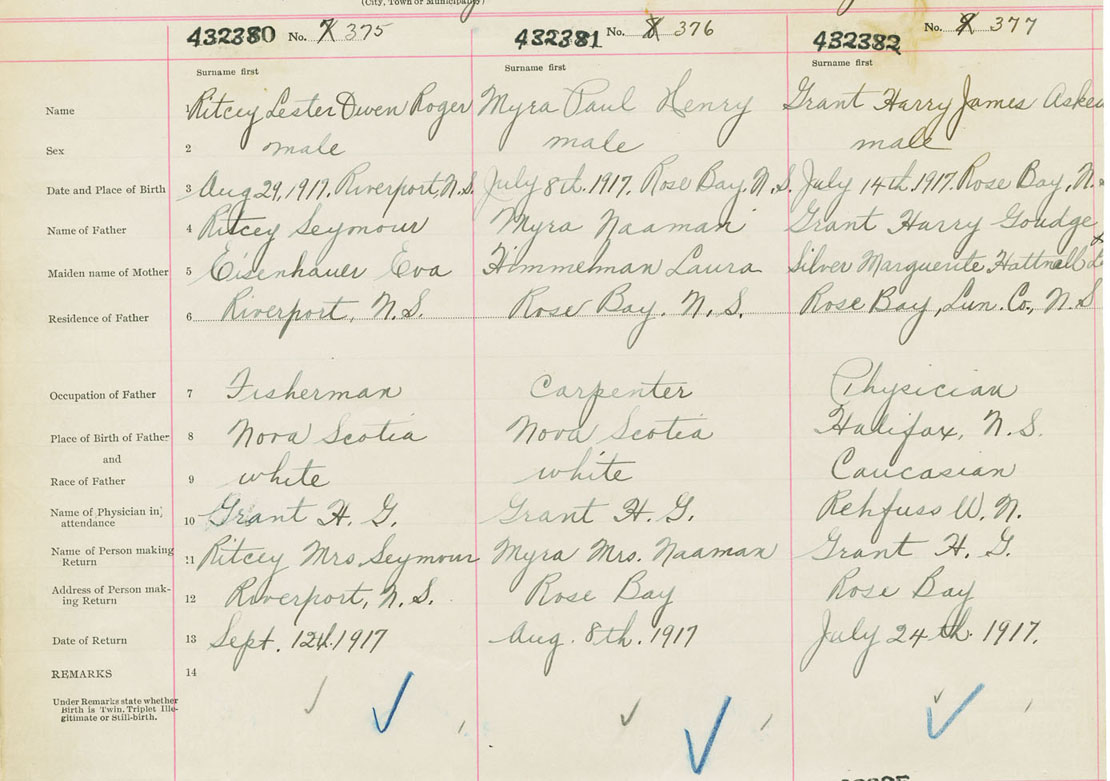 (City, Town or Municipality)
432380 No. 7 375 432381 No. 8 376 432382 No. 9 377
Surname first Surname first Surname first
Name 1 Ritcey Lester Owen Roger Myra Paul Henry Grant Harry James
Sex 2 male male male
Date and Place of Birth 3 Aug 29, 1917, Riverport, N.S. July 8th. 1917. Rose Bay, N.S. July 14th 1917. Rose Bay, N.
Name of Father 4 Ritcey Seymour Myra Naaman Grant Harry Goudge
Maiden name of Mother 5 Eisenhauer Eva Himmelman Laura Silver Marguerite
Residence of Father 6 Riverport, N.S. Rose Bay. N.S. Rose Bay, Lun. Co., N.S
Occupation of Father 7 Fisherman Carpenter Physician
Place of Birth of Father 8 Nova Scotia Nova Scotia Halifax, N.S.
and
Race of Father 9 white white Caucasian
Name of Physician in attendance 10 Grant H. G. Grant H. G. Rehfuss W. N.
Name of Person making Return 11 Ritcey Mrs Seymour Myra Mrs. Naaman Grant H. G.
Address of Person making Return 12 Riverport, N.S. Rose Bay Rose Bay
Date of Return 13 Sept. 12th. 1917 Aug. 8th. 1917 July 24th. 1917.
REMARKS 14
Under Remarks state whether
Birth is Twin, Triplet Ille-
gitimate or Still-birth.